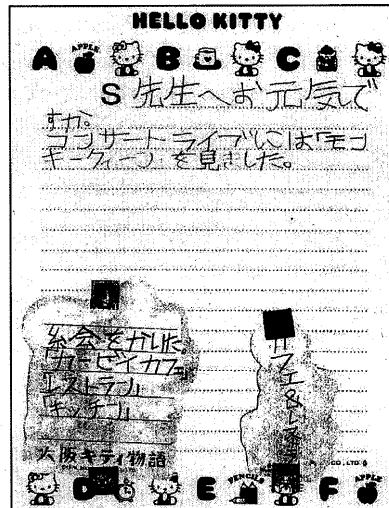 HELLO KITTY
A APPLE B C
S 先生へお元気で
すか。
コンサートライブには「モン
キークィーン」を見ました。
絵をかいた。
「カービィカフェ」
「レストラン」
「キッチン」
カフェ&
大阪キティ物語
CO.,LTD.
D E PENCILS F APPLE